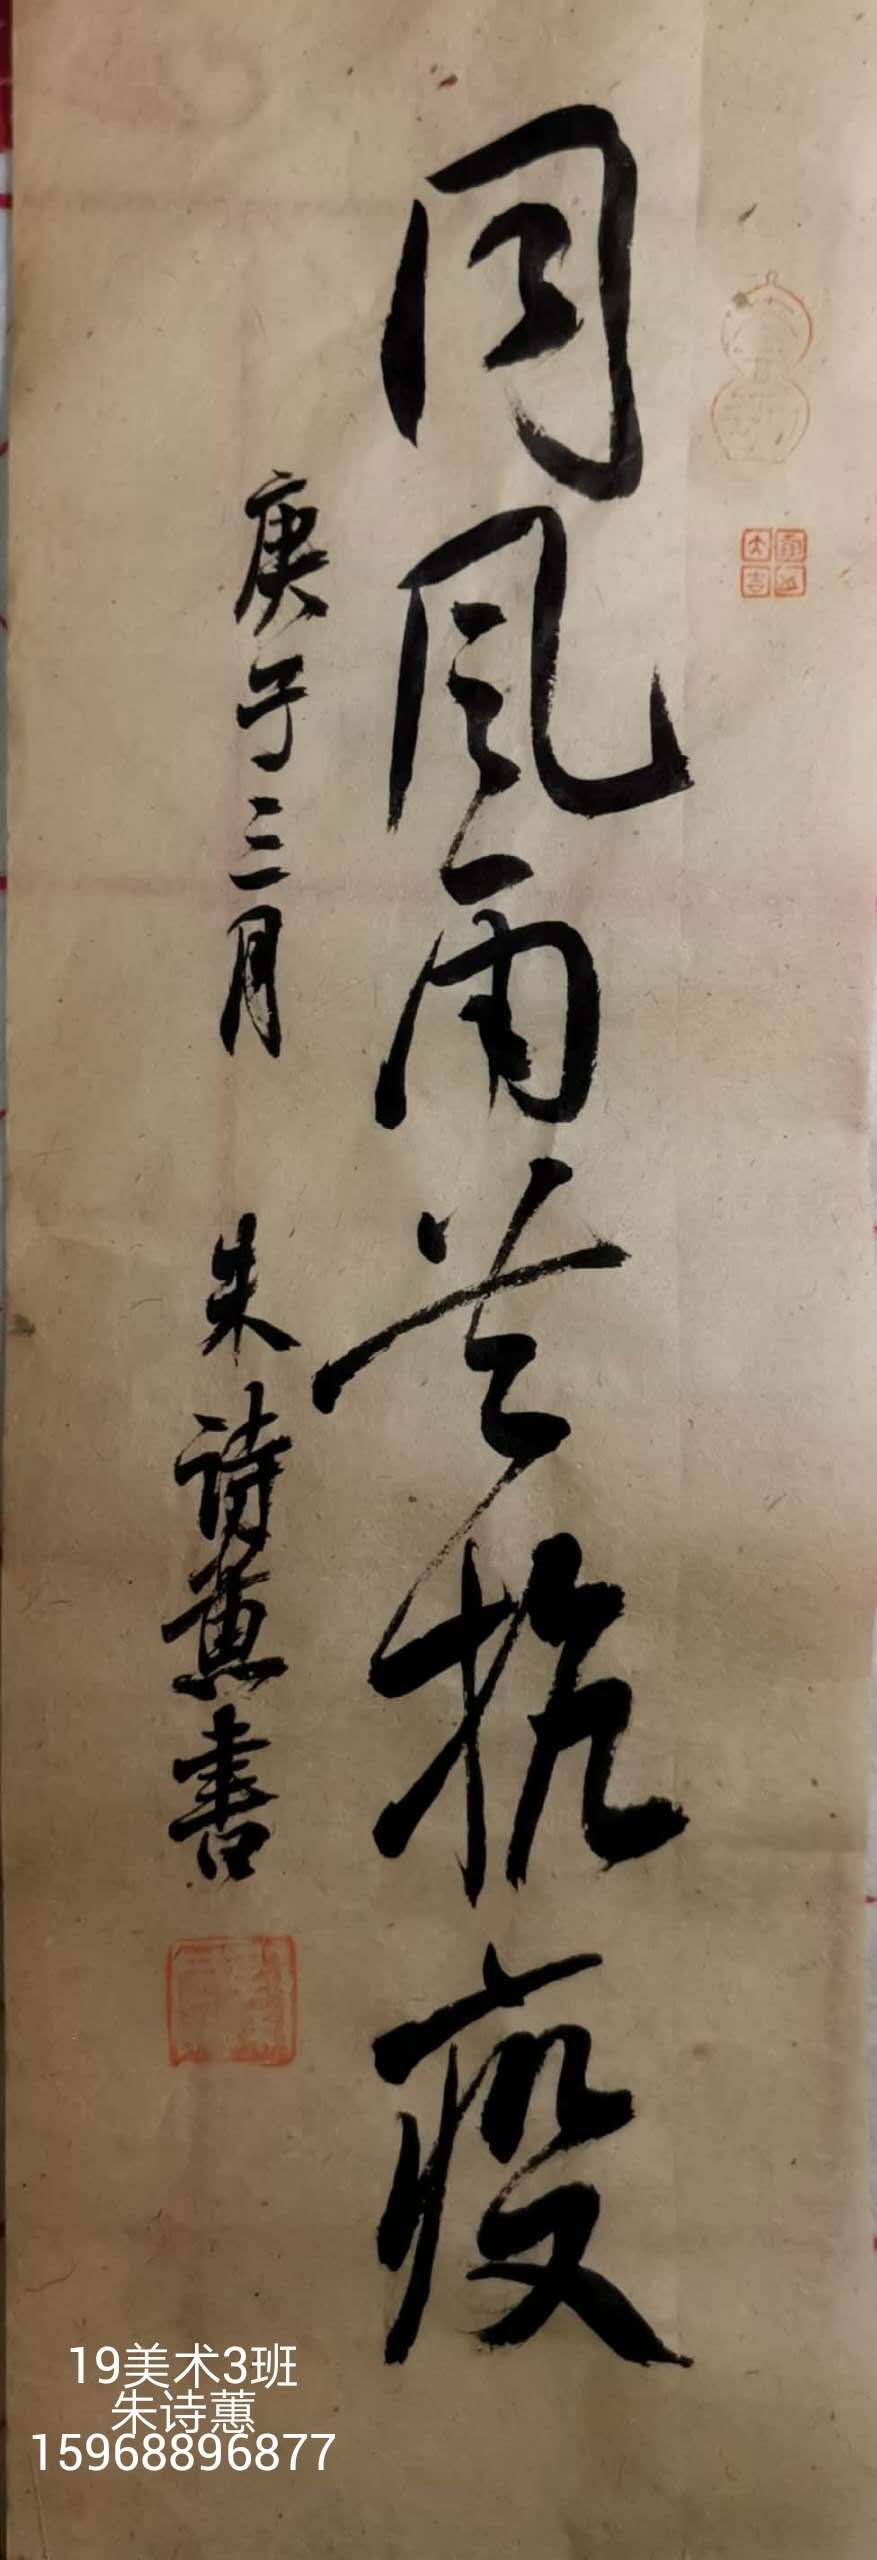 同风雨共抗疫
庚子三月 朱诗蕙书
19美术3班
朱诗蕙
15968896877